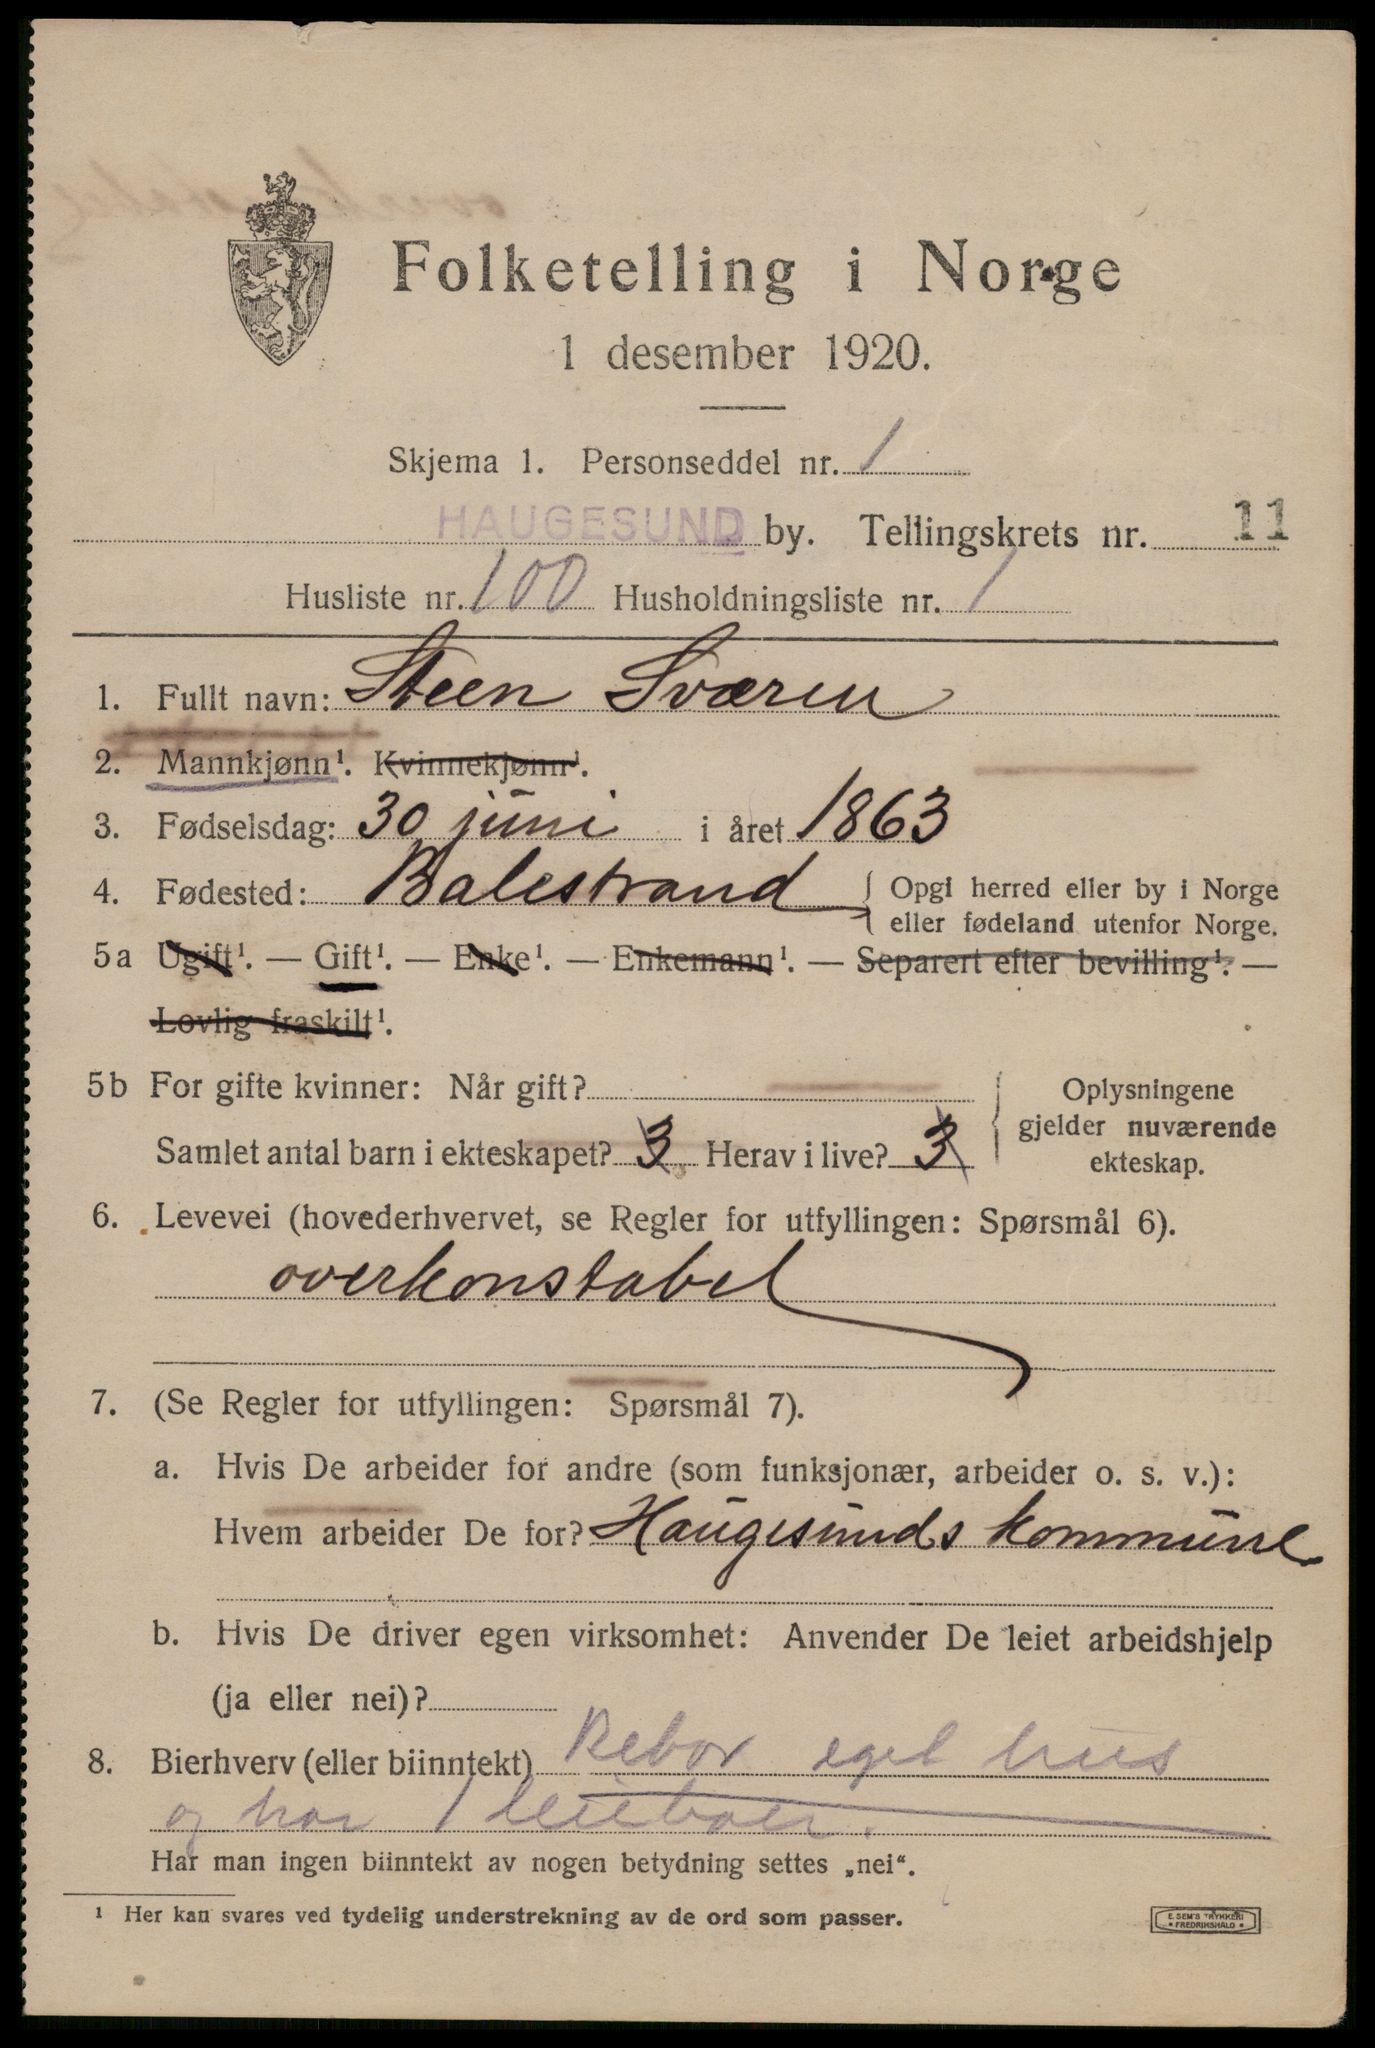 Folketelling i Norge
1 desember 1920.
Skjema 1. Personseddel nr. 1
HAUGESUND by. Tellingskrets nr. 11
Husliste nr. 100 Husholdningsliste nr. 1
1. Fullt navn: Steen Sværen
2. Mannkjønn¹. Kvinnekjønn¹.
3. Fødselsdag: 30 juni i året 1863
4. Fødested: Balestrand { Opgi herred eller by i Norge
eller fødeland utenfor Norge.
5a Ugift¹. — Gift¹. — Enke¹. — Enkemann¹. — Separert efter bevilling¹. —
Lovlig fraskilt¹.
5b For gifte kvinner: Når gift? { Oplysningene
gjelder nuværende
Samlet antal barn i ekteskapet? 3 Herav i live? 3
ekteskap.
6. Levevei (hovederhvervet, se Regler for utfyllingen: Spørsmål 6).
overkonstabel
7. (Se Regler for utfyllingen: Spørsmål 7).
a. Hvis De arbeider for andre (som funksjonær, arbeider o. s. v.):
Hvem arbeider De for? Haugesunds kommune
b. Hvis De driver egen virksomhet: Anvender De leiet arbeidshjelp
(ja eller nei)?
8. Bierhverv (eller biinntekt) Bebor eget hus
og har 1 leieboer.
Har man ingen biinntekt av nogen betydning settes „nei“.
¹ Her kan svares ved tydelig understrekning av de ord som passer.
E. SEM'S TRYKKERI
• FREDRIKSHALD •